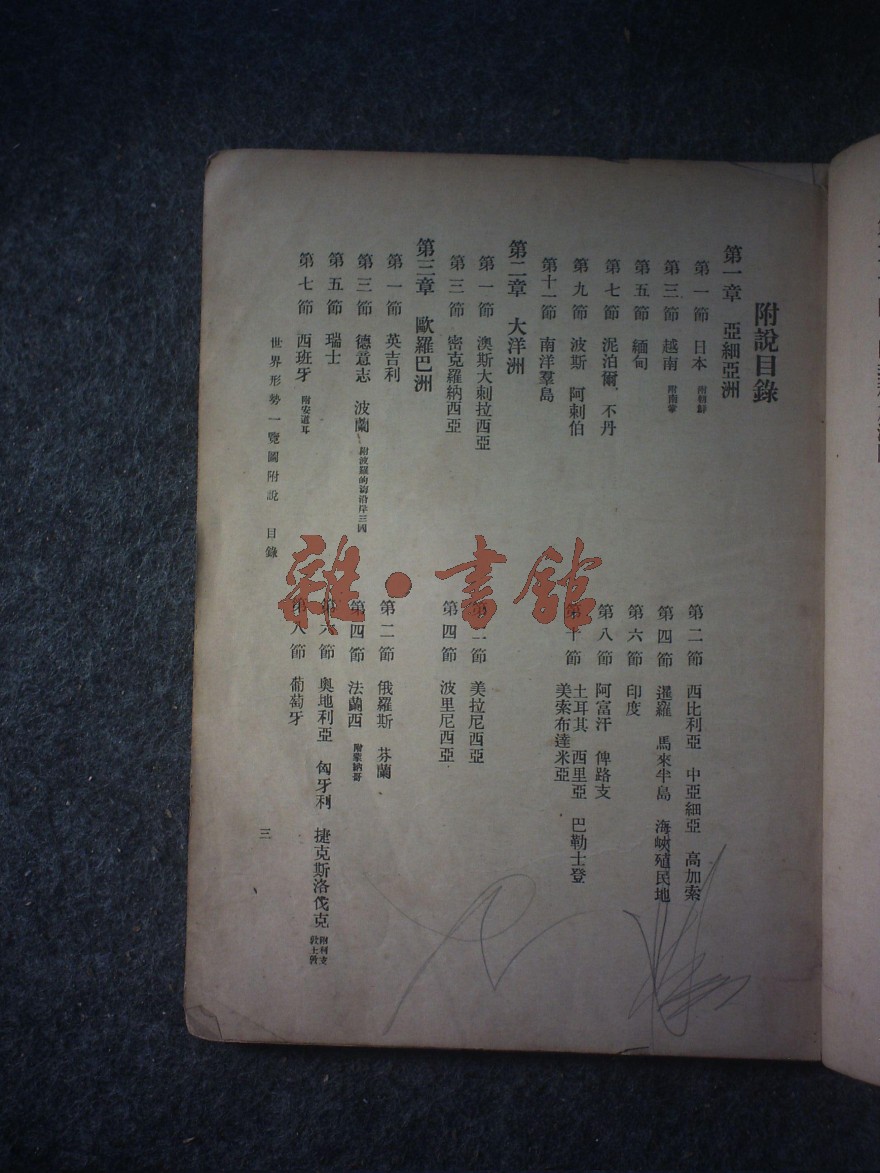 附說目錄
第一章 亞細亞洲
第一節 日本 附朝鮮
第二節 西比利亞 中亞細亞 高加索
第三節 越南 附南掌
第四節 暹羅 馬來半島 海峽殖民地
第五節 緬甸
第六節 印度
第七節 泥泊爾、不丹
第八節 阿富汗 俾路支
第九節 波斯 阿剌伯
第十節 土耳其 西里亞 巴勒士登
美索布達米亞
第十一節 南洋羣島
第二章 大洋洲
第一節 澳斯大剌拉西亞
第二節 美拉尼西亞
第三節 密克羅納西亞
第四節 波里尼西亞
第三章 歐羅巴洲
第一節 英吉利
第二節 俄羅斯 芬蘭
第三節 德意志 波蘭 附波羅的海沿岸三國
第四節 法蘭西 附蒙納哥
第五節 瑞士
第六節 奧地利亞 匈牙利 捷克斯洛伐克 附利支敦士敦
第七節 西班牙 附安道耳
第八節 葡萄牙
世界形勢一覽圖附說 目錄
三
雜·書館